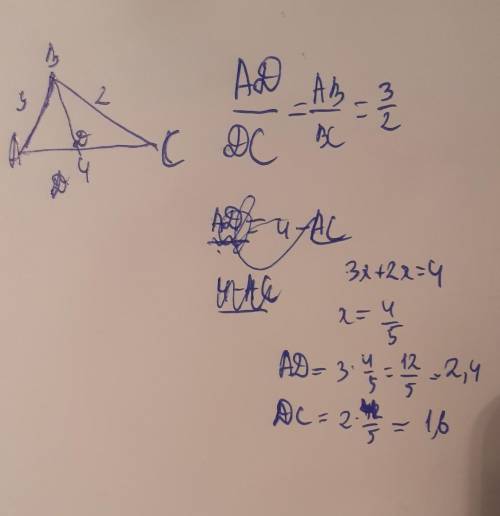 B
3 2
A D C
4
D
AD/DC = AB/BC = 3/2
AD = 4 - AC
4-AC
3x+2x=4
x = 4/5
AD = 3 · 4/5 = 12/5 = 2,4
DC = 2 · 4/5 = 1,6